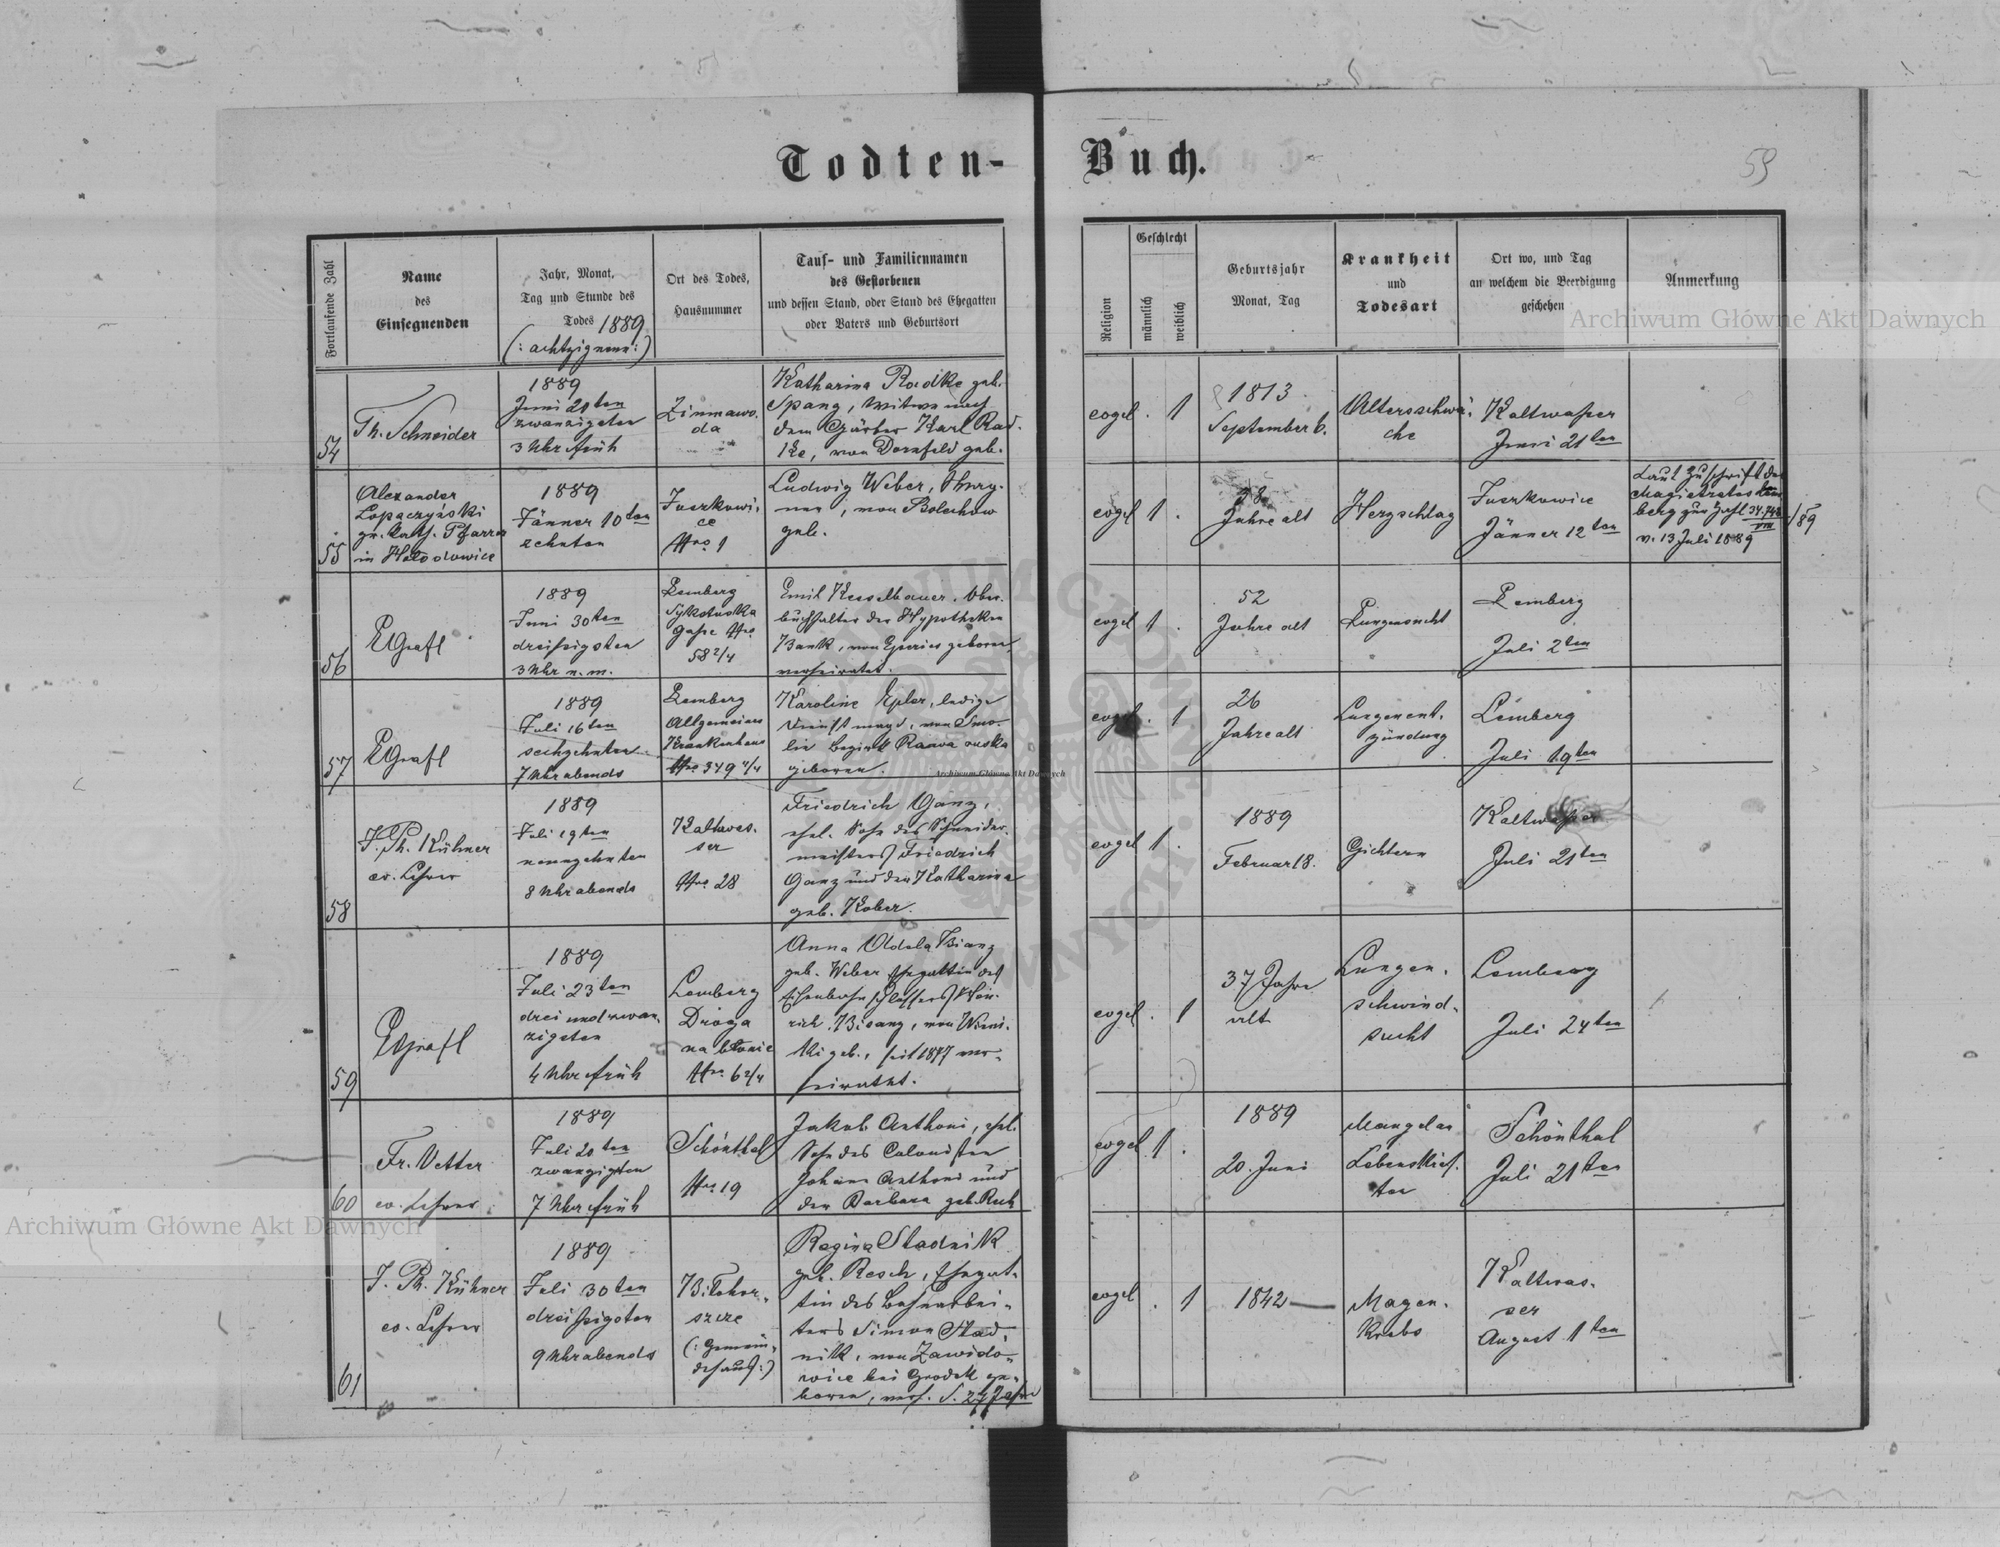 Todten-
Buch.
59
Fortlaufende Zahl
Name
des
Einsegnenden
Jahr, Monat,
Tag und Stunde des
Todes 1889
(: achtzigneun :)
Ort des Todes,
Hausnummer
Tauf- und Familiennamen
des Gestorbenen
und dessen Stand, oder Stand des Ehegatten
oder Vaters und Geburtsort
Religion
Geschlecht
männlich
weiblich
Geburtsjahr
Monat, Tag
Krankheit
und
Todesart
Ort wo, und Tag
an welchem die Beerdigung
geschehen
Anmerkung
Archiwum Główne Akt Dawnych
54
Th. Schneider
1889
Juni 20ten
zwanzigsten
3 Uhr früh
Zimnawo-
da
Katharina Radke geb.
Spang, Witwe nach
dem Gärber Karl Rad-
ke, von Dornfeld geb.
evgel.
1
1813
September 6.
Altersschwä-
che
Kaltwasser
Juni 21ten
55
Alexander
Lopaczyński
gr. kath. Pfarrer
in Hołodowice
1889
Jänner 10ten
zehnten
Juszkowi-
ce
Nro 1
Ludwig Weber,
von Bolechow
geb.
evgel
1
28
Jahre alt
Herzschlag
Juszkowice
Jänner 12ten
Laut Zuschrift des
Magistrates Lem-
berg zur Zahl 34.748/89
v. 13 Juli 1889
56
EGrafl
1889
Juni 30ten
dreissigsten
3 Uhr n. m.
Lemberg
Sykstuska
Gasse Nro
58 2/4
Emil Kesselbauer, Ober-
buchhalter der Hypotheken
Bank, von Eperies geboren,
verheiratet.
evgel
1
52
Jahre alt
Lungensucht
Lemberg
Juli 2ten
57
EGrafl
1889
Juli 16ten
sechzehnten
7 Uhr abends
Lemberg
Allgemeines
Krankenhaus
Nro 349 4/4
Karoline Epler, ledige
Dienstmagd, von Smo-
lin Bezirk Rawa ruska
geboren.
evgel.
1
26
Jahre alt
Lungenent-
zündung
Lemberg
Juli 19ten
Archiwum Główne Akt Dawnych
58
J. Ph. Kühner
ev. Lehrer
1889
Juli 19ten
neunzehnten
8 Uhr abends
Kaltwas-
ser
Nro 28
Friedrich Ganz,
ehel. Sohn des Schneider-
meisters Friedrich
Ganz und der Katharina
geb. Kober.
evgel
1
1889
Februar 18.
Gichtern
Kaltwasser
Juli 21ten
59
EGrafl
1889
Juli 23ten
drei und zwan-
zigsten
4 Uhr früh
Lemberg
Droga
na błonie
Nro 6 2/4
Anna Adela Bisanz
geb. Weber Ehegattin des
Eisenbahnschlossers Hein-
rich Bisanz, von Winni-
ki geb., seit 1877 ver-
heiratet.
evgel
1
37 Jahre
alt
Lungen-
schwind-
sucht
Lemberg
Juli 24ten
60
Fr. Vetter
ev. Lehrer
1889
Juli 20ten
zwanzigsten
7 Uhr früh
Schönthal
Nro 19
Jakob Anthoni, ehel.
Sohn des Colonisten
Johann Anthoni und
der Barbara geb. Ruh
evgel
1
1889
20. Juni
Mangel an
Lebenskräf-
ten
Schönthal
Juli 21ten
Archiwum Główne Akt Dawnych
61
J. Ph. Kühner
ev. Lehrer
1889
Juli 30ten
dreissigsten
9 Uhr abends
Biłohor-
szcze
(: Gemein-
dehaus :)
Regina Stadnik
geb. Resch, Ehegat-
tin des Bahnarbei-
ters Simon Stad-
nik, von Zawido-
wice bei Grodek ge-
boren, verh. s. 27 Jahre
evgel
1
1842
Magen-
krebs
Kaltwas-
ser
August 1ten